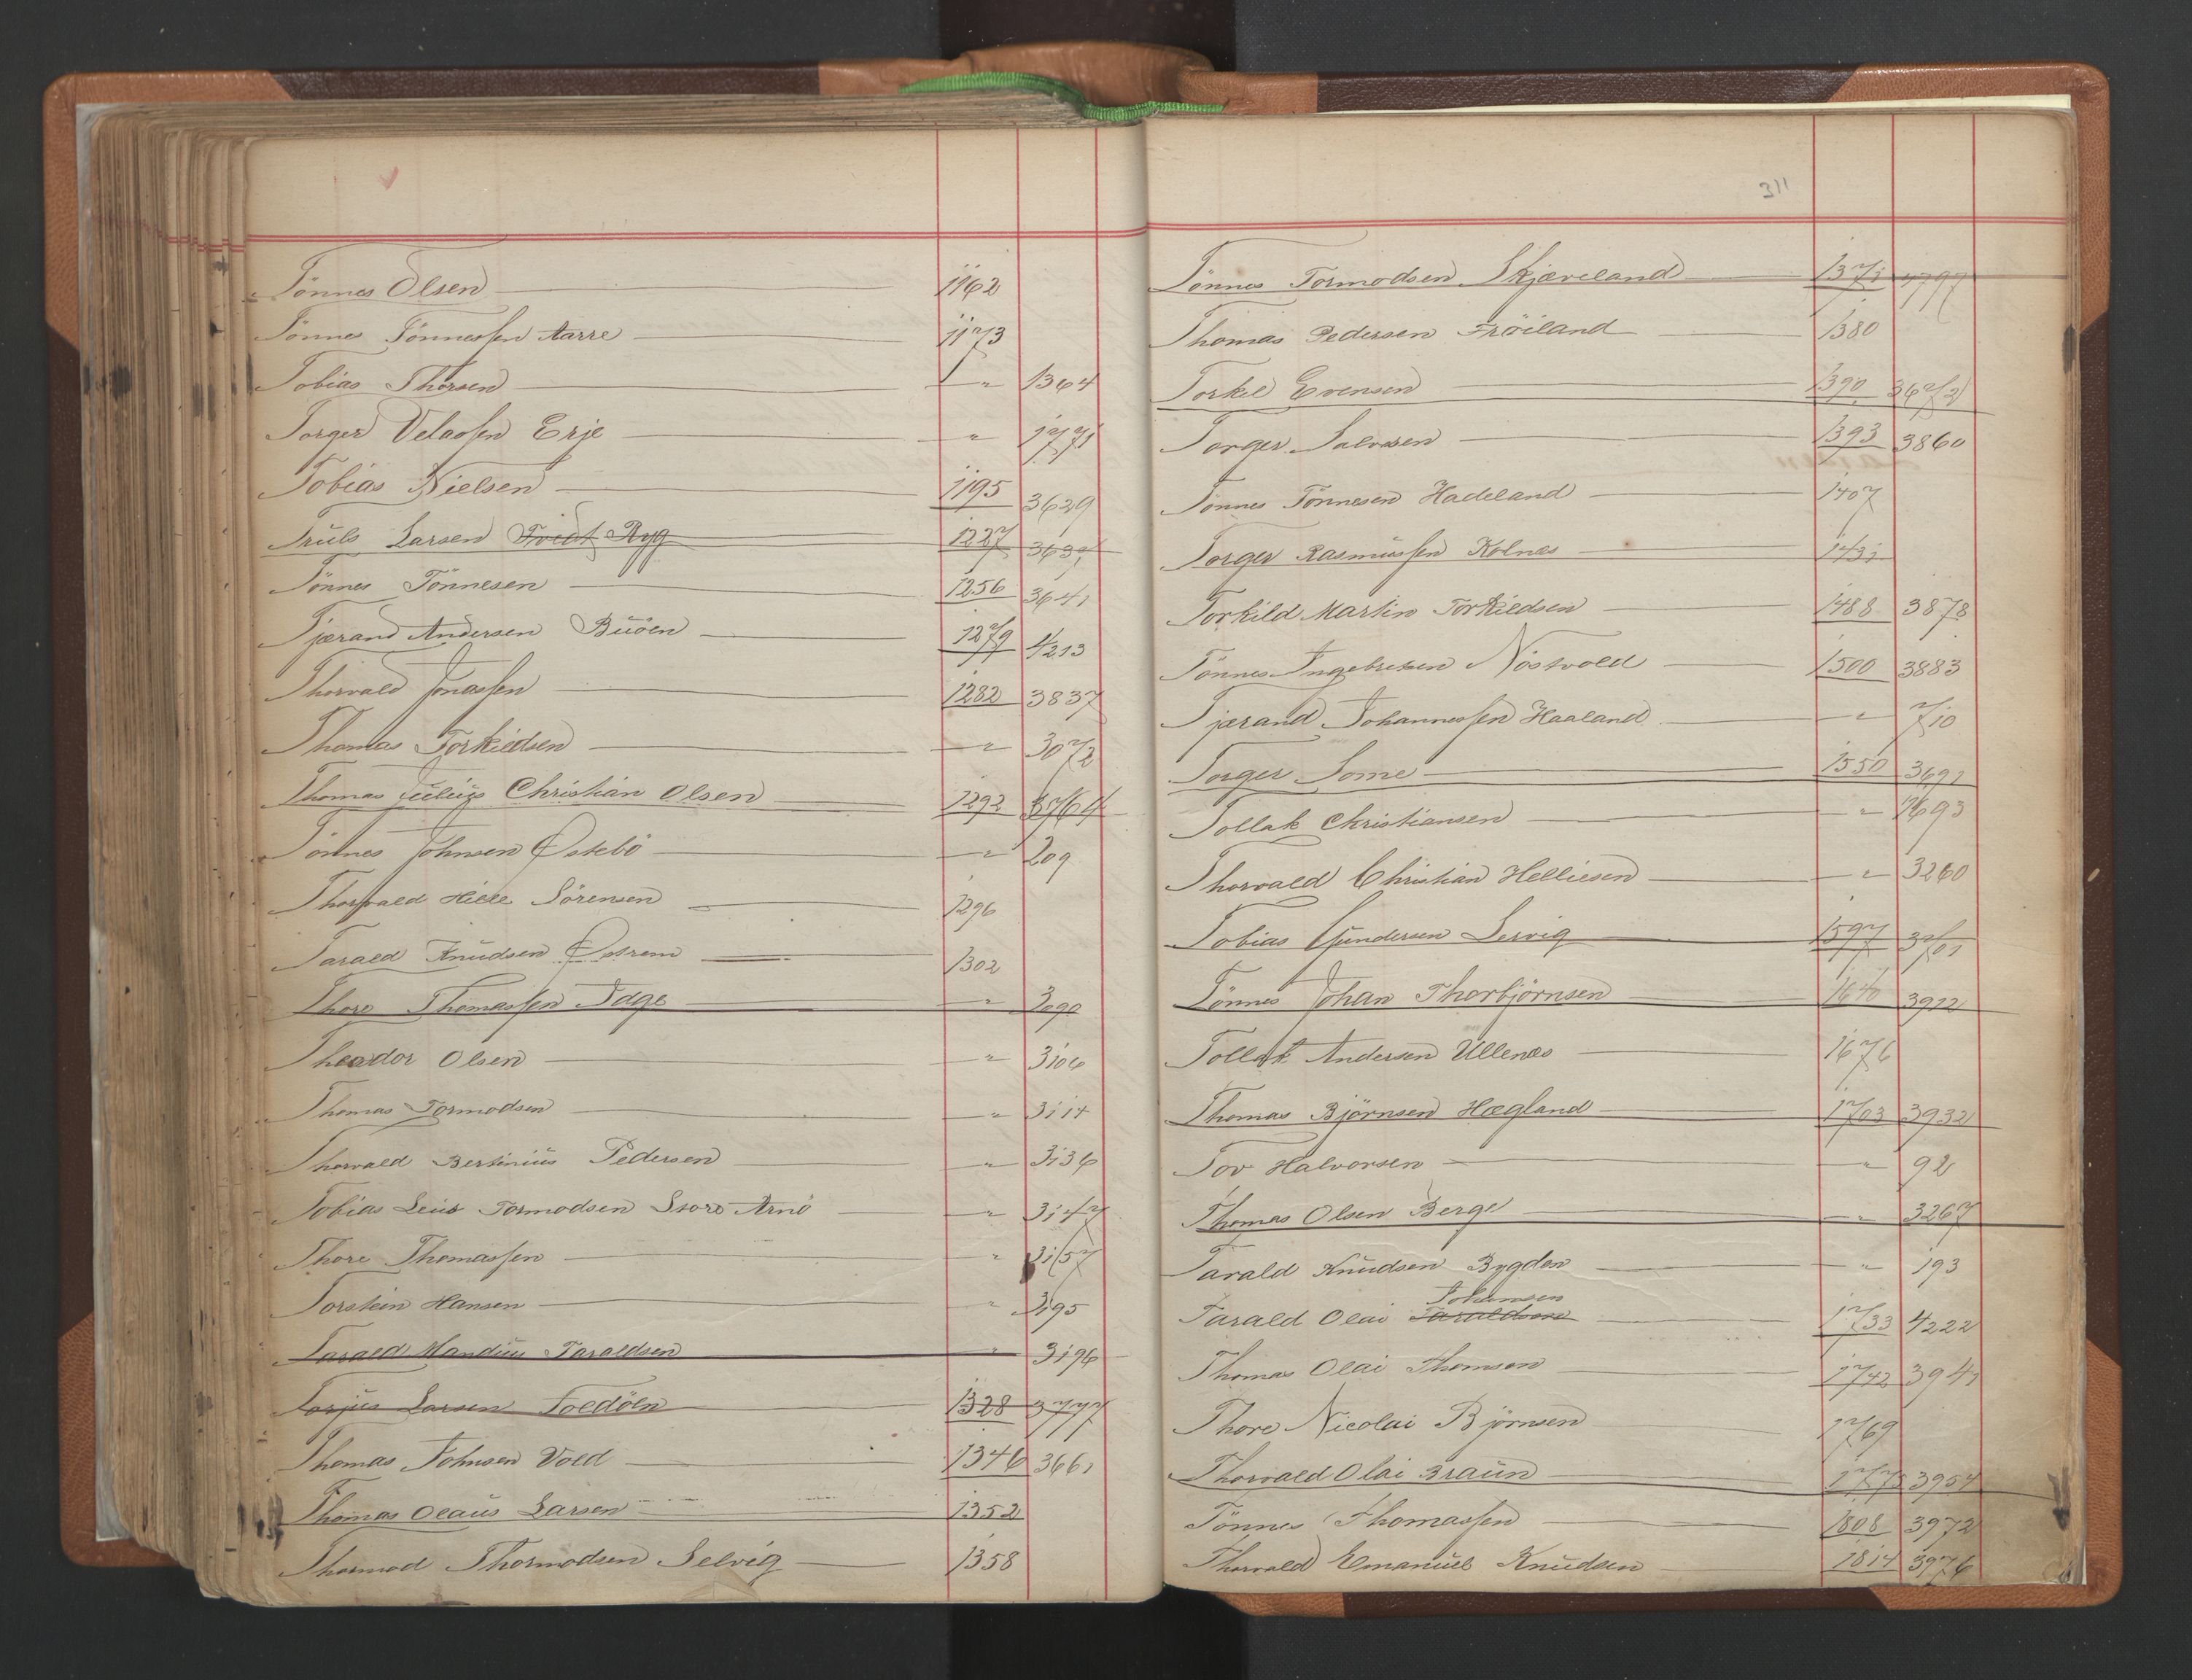 Tönnes Olsen 1162
Tönnes Tönnessen Aarre 1173
Tobias Thorsen " 1364
Torger Velassen Erje " 1771
Tobias Nielsen 1195 3629
Truls Larsen Tvedt Ryg 1227
Tönnes Tönnesen 1256 3641
Tjærand Andersen Buöen 1279 4213
Thorvald Jonassen 1282 3837
Thomas Torkildsen " 3072
Thomas Julius Christian Olsen 1292 3764
Tönnes Johnsen Østebö " 209
Thorvald Hille Sörensen 1296
Tarald Knudsen Østrem 1302
Thore Thomassen Idge " 3090
Theodor Olsen " 3106
Thomas Tormodsen " 3114
Thorvald Bertinius Pedersen " 3136
Tobias Leus Tormodsen Store Arnö " 3147
Thore Thomassen " 3157
Torstein Hansen " 3195
Tarald Mandius Taraldsen " 3196
Torjus Larsen Foldöln 1328 3777
Thomas Johnsen Vold 1346 3661
Thomas Olaus Larsen 1352
Thormod Thormodsen Selvig 1358
311
Tönnes Tormodsen Skjæveland 1371 4797
Thomas Pedersen Fröiland 1380
Torkil Evensen 1390 3672
Torger Salvesen 1393 3860
Tönnes Tönnesen Hadeland 1407
Torger Rasmussen Kolnæs 1431
Torkild Martin Torkildsen 1488 3878
Tönnes Ingebretsen Nöstvold 1500 3883
Tjærand Johannessen Haaland " 710
Torger Lome 1550 3691
Tollak Christiansen " 1693
Thorvald Christian Helliesen " 3260
Tobias Gundersen Lervig 1597 3701
Tönnes Johan Thorbjörnsen 1640 3912
Tollak Andersen Ullenæs 1676
Thomas Björnsen Hægland 1703 3932
Tov Halvorsen " 92
Thomas Olsen Berge " 3267
Tarald Knudsen Bygden " 193
Johansen
Tarald Olai Taraldsen 1733 4222
Thomas Olai Thomsen 1742 3941
Thore Nicolai Björnsen 1769
Thorvald Olai Braun 1775 3954
Tönnes Thomassen 1808 3972
Thorvald Emanuel Knudsen 1814 3976